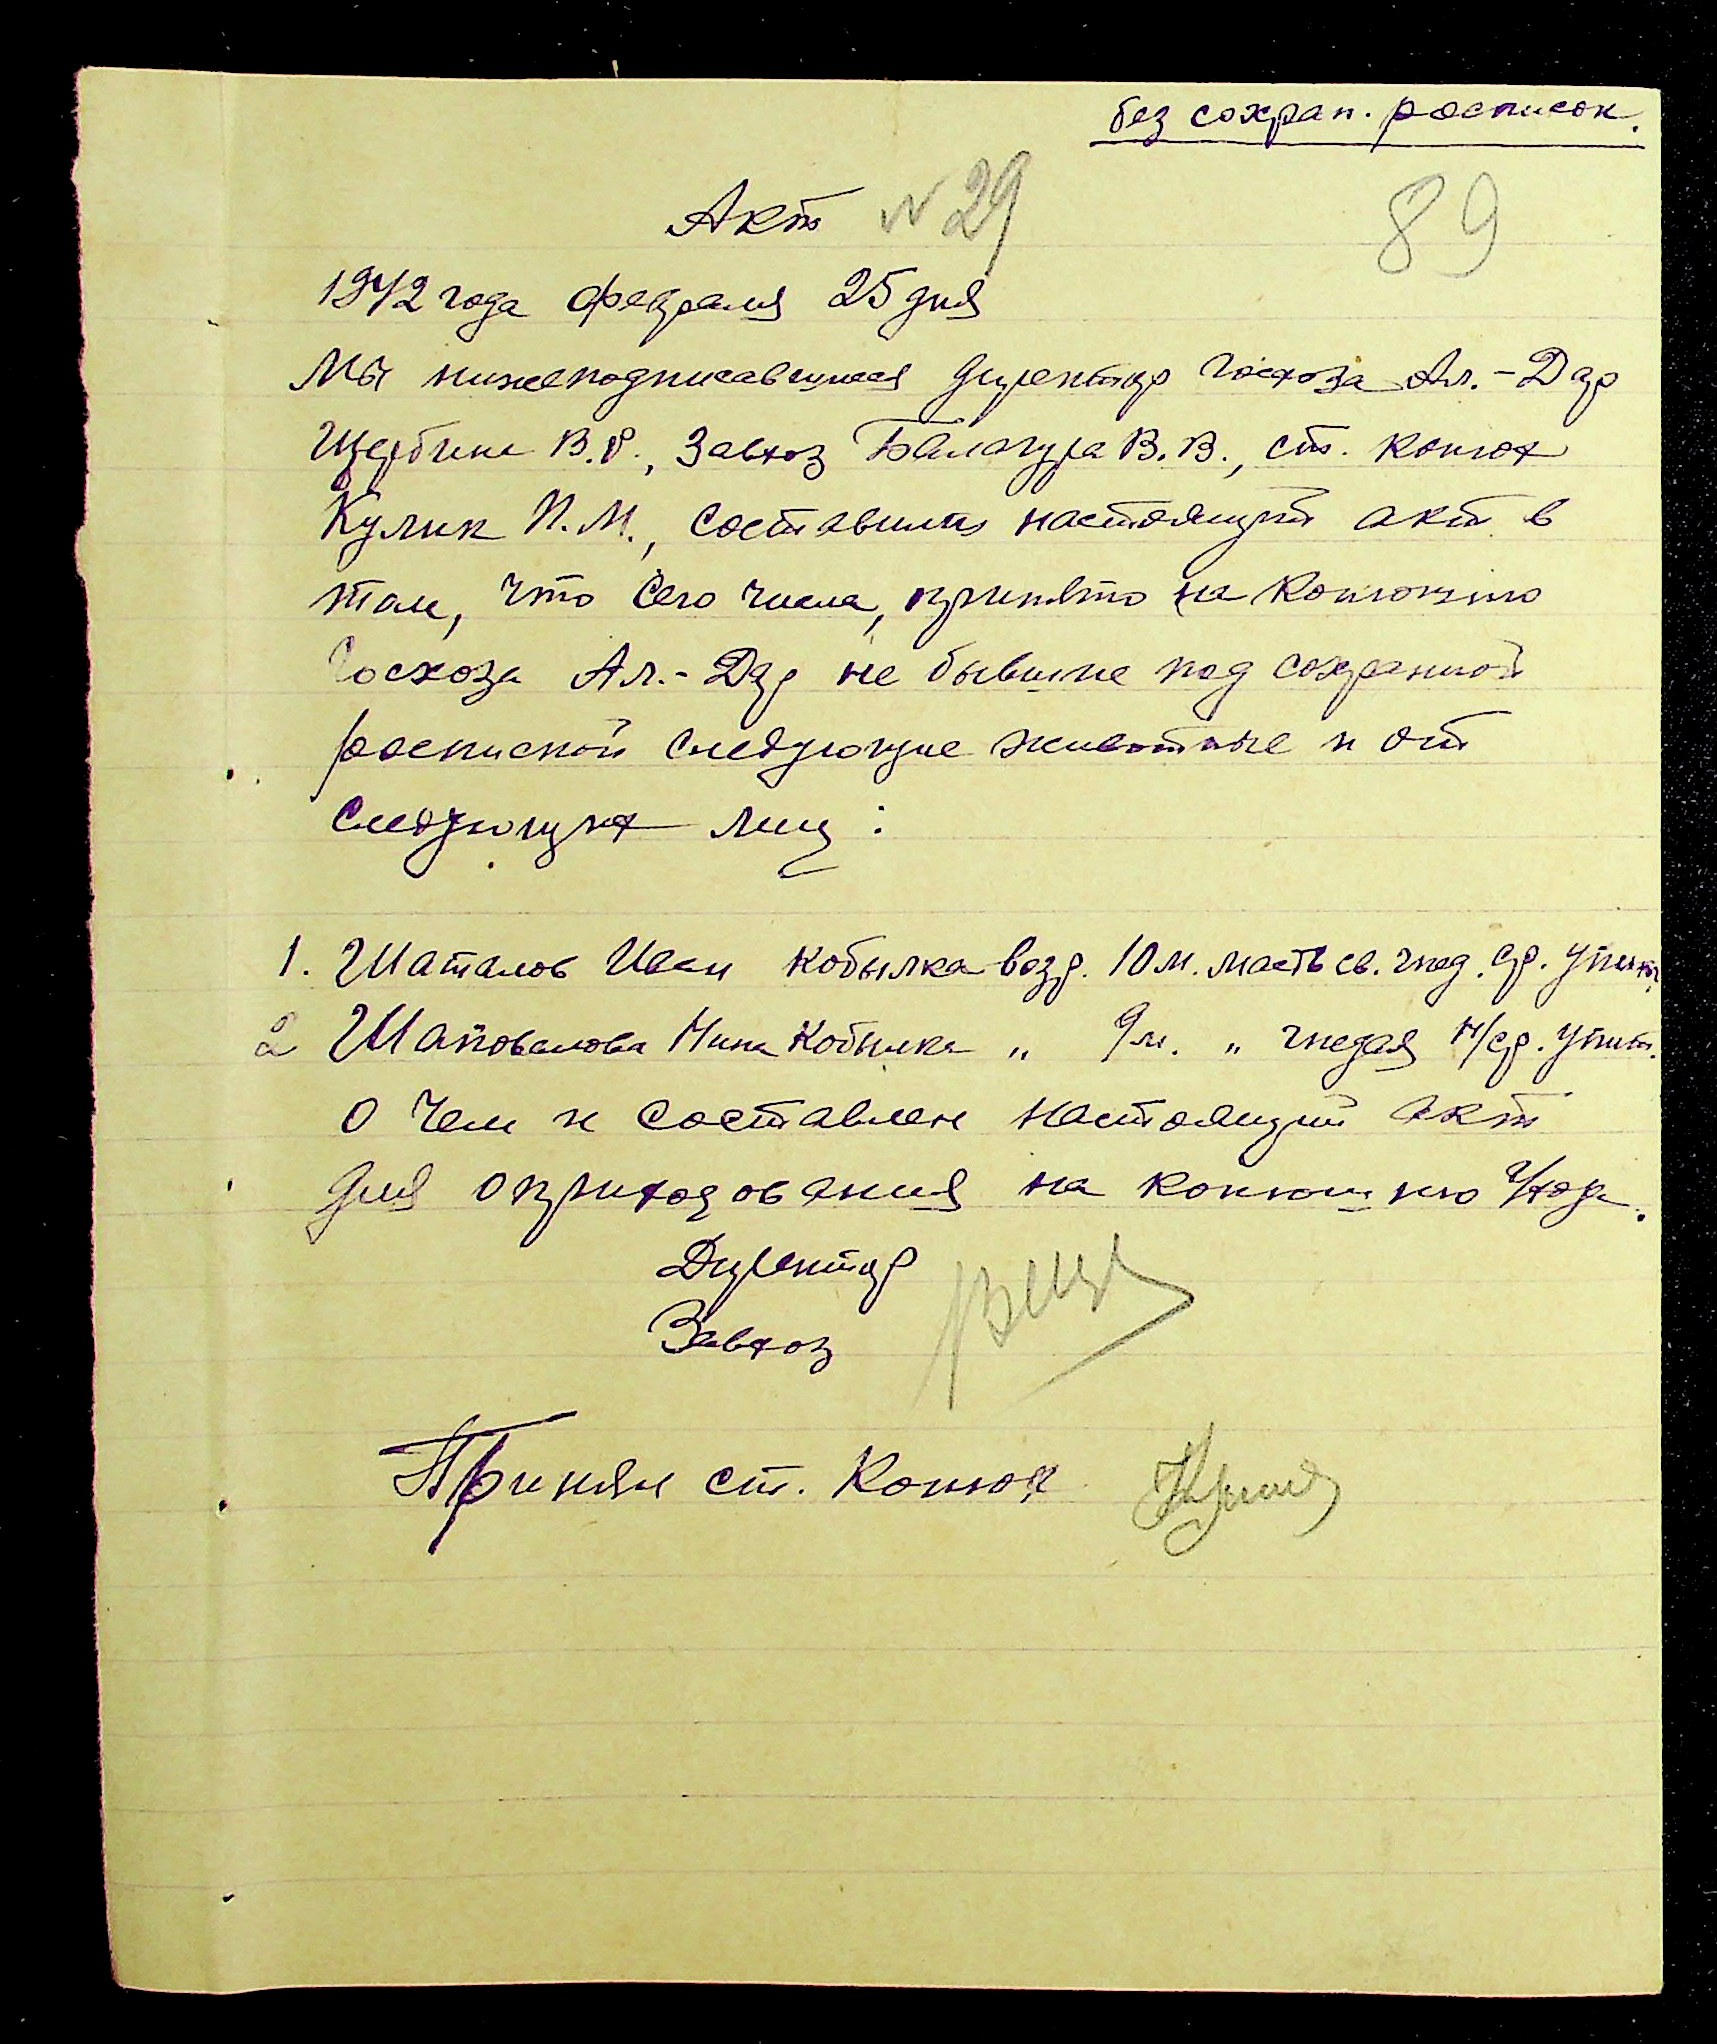 без сохран. расписок.
Акт № 29
89
1942 года февраля 25 дня
Мы нижеподписавшиеся директор госхоза Ал.-Дар
Щербина В.Ф., Завхоз Балагура В.В., ст. конюх
Кулик П.М., составили настоящий акт в
том, что сего числа, принято на конюшню
Госхоза Ал.-Дар не бывшие под сохранной
распиской следующие животные и от
следующих лиц:
1. Шаталов Иван кобылка возр. 10 м. масть св. гнед. ср. упитан.
2 Шаповалова Нина кобылка „ 9 м. „ гнедая н/ср. упит.
о чем и составлен настоящий акт
для оприходования на конюшню
Директор
Завхоз
Принял ст. Конюх